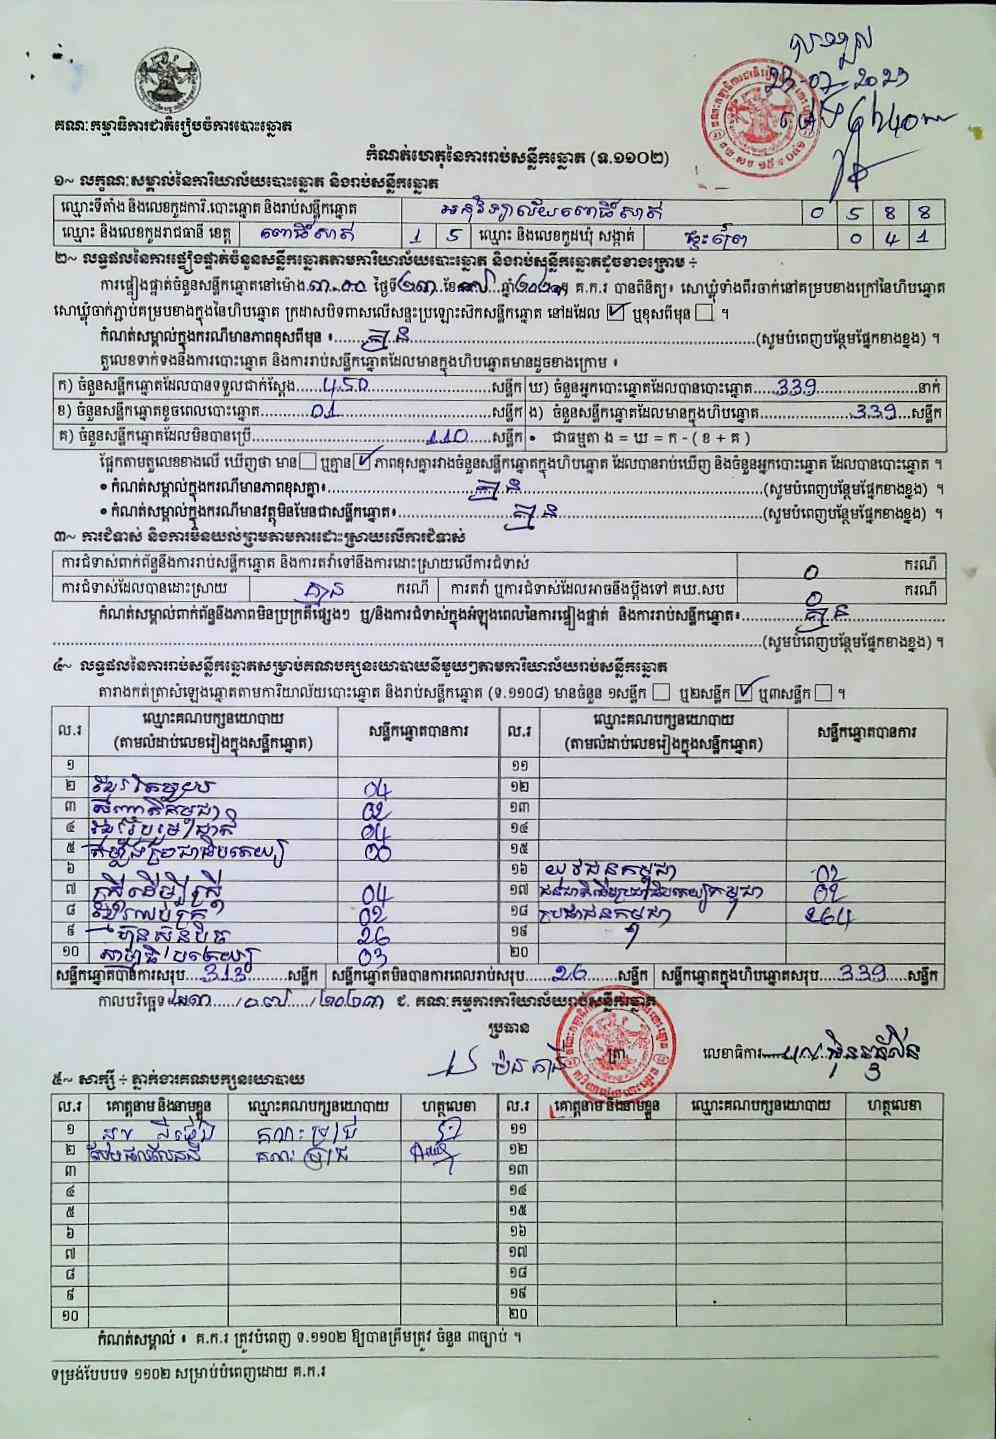 បានទទួល
23-07-2023
គណៈកម្មាធិការជាតិរៀបចំការបោះឆ្នោត
កំណត់ហេតុនៃការរាប់សន្លឹកឆ្នោត (ទ.១១០២)
១~ លក្ខណៈសម្គាល់នៃការិយាល័យបោះឆ្នោត និងរាប់សន្លឹកឆ្នោត
ឈ្មោះទីតាំង និងលេខកូដការិ.បោះឆ្នោត និងរាប់សន្លឹកឆ្នោត អនុវិទ្យាល័យពោធិ៍សាត់ 0 5 8 8
ឈ្មោះ និងលេខកូដរាជធានី ខេត្ត ពោធិ៍សាត់ 1 5 ឈ្មោះ និងលេខកូដឃុំ សង្កាត់ ផ្ទះព្រៃ 0 4 1
២~ លទ្ធផលនៃការផ្ទៀងផ្ទាត់ចំនួនសន្លឹកឆ្នោតតាមការិយាល័យបោះឆ្នោត និងរាប់សន្លឹកឆ្នោតដូចខាងក្រោម ÷
ការផ្ទៀងផ្ទាត់ចំនួនសន្លឹកឆ្នោតនៅម៉ោង ៣.០០ ថ្ងៃទី២៣ ខែ ឆ្នាំ គ.ក.រ បានពិនិត្យ៖ សោឃ្លុំទាំងពីរចាក់នៅគម្របខាងក្រៅនៃហិបឆ្នោត
សោឃ្លុំចាក់ភ្ជាប់គម្របខាងក្នុងនៃហិបឆ្នោត ក្រដាសបិទពាសលើសន្ទះប្រឡោះស៊កសន្លឹកឆ្នោត នៅដដែល ☑ ឬខុសពីមុន ☐ ។
កំណត់សម្គាល់ក្នុងករណីមានភាពខុសពីមុន ៖ គ្មាន (សូមបំពេញបន្ថែមផ្នែកខាងខ្នង) ។
តួលេខទាក់ទងនឹងការបោះឆ្នោត និងការរាប់សន្លឹកឆ្នោតដែលមានក្នុងហិបឆ្នោតមានដូចខាងក្រោម ៖
ក) ចំនួនសន្លឹកឆ្នោតដែលបានទទួលជាក់ស្តែង 450 សន្លឹក ឃ) ចំនួនអ្នកបោះឆ្នោតដែលបានបោះឆ្នោត 339 នាក់
ខ) ចំនួនសន្លឹកឆ្នោតខូចពេលបោះឆ្នោត 01 សន្លឹក ង) ចំនួនសន្លឹកឆ្នោតដែលមានក្នុងហិបឆ្នោត 339 សន្លឹក
គ) ចំនួនសន្លឹកឆ្នោតដែលមិនបានប្រើ 110 សន្លឹក • ជាធម្មតា ង = ឃ = ក - ( ខ + គ )
ផ្អែកតាមតួលេខខាងលើ ឃើញថា មាន ☐ ឬគ្មាន ☑ ភាពខុសគ្នារវាងចំនួនសន្លឹកឆ្នោតក្នុងហិបឆ្នោត ដែលបានរាប់ឃើញ និងចំនួនអ្នកបោះឆ្នោត ដែលបានបោះឆ្នោត ។
• កំណត់សម្គាល់ក្នុងករណីមានភាពខុសគ្នា៖ គ្មាន (សូមបំពេញបន្ថែមផ្នែកខាងខ្នង) ។
• កំណត់សម្គាល់ក្នុងករណីមានវត្ថុមិនមែនជាសន្លឹកឆ្នោត៖ គ្មាន (សូមបំពេញបន្ថែមផ្នែកខាងខ្នង) ។
៣~ ការជំទាស់ និងការមិនយល់ព្រមតាមការដោះស្រាយលើការជំទាស់
ការជំទាស់ពាក់ព័ន្ធនឹងការរាប់សន្លឹកឆ្នោត និងការតវ៉ាទៅនឹងការដោះស្រាយលើការជំទាស់ 0 ករណី
ការជំទាស់ដែលបានដោះស្រាយ គ្មាន ករណី ការតវ៉ា ឬការជំទាស់ដែលអាចនឹងប្តឹងទៅ គឃ.សប 0 ករណី
កំណត់សម្គាល់ពាក់ព័ន្ធនឹងភាពមិនប្រក្រតីផ្សេងៗ ឬ/និងការជំទាស់ក្នុងអំឡុងពេលនៃការផ្ទៀងផ្ទាត់ និងការរាប់សន្លឹកឆ្នោត៖ គ្មាន
(សូមបំពេញបន្ថែមផ្នែកខាងខ្នង) ។
៤~ លទ្ធផលនៃការរាប់សន្លឹកឆ្នោតសម្រាប់គណបក្សនយោបាយនីមួយៗតាមការិយាល័យរាប់សន្លឹកឆ្នោត
តារាងកត់ត្រាសំឡេងឆ្នោតតាមការិយាល័យបោះឆ្នោត និងរាប់សន្លឹកឆ្នោត (ទ.១១០៨) មានចំនួន ១សន្លឹក ☐ ឬ២សន្លឹក ☑ ឬ៣សន្លឹក ☐ ។
ល.រ ឈ្មោះគណបក្សនយោបាយ (តាមលំដាប់លេខរៀងក្នុងសន្លឹកឆ្នោត) សន្លឹកឆ្នោតបានការ ល.រ ឈ្មោះគណបក្សនយោបាយ (តាមលំដាប់លេខរៀងក្នុងសន្លឹកឆ្នោត) សន្លឹកឆ្នោតបានការ
១ ១១
២ 04 ១២
៣ 02 ១៣
៤ 04 ១៤
៥ 00 ១៥
៦ ១៦ យុវជនកម្ពុជា 02
៧ ស្រីដើម្បីស្រី 04 ១៧ ជនជាតិដើមប្រជាធិបតេយ្យកម្ពុជា 02
៨ 02 ១៨ ប្រជាជនកម្ពុជា 264
៩ ហ៊្វុនស៊ិនប៉ិច 26 ១៩
១០ 03 ២០
សន្លឹកឆ្នោតបានការសរុប 313 សន្លឹក សន្លឹកឆ្នោតមិនបានការពេលរាប់សរុប 26 សន្លឹក សន្លឹកឆ្នោតក្នុងហិបឆ្នោតសរុប 339 សន្លឹក
កាលបរិច្ឆេទ៖ ២៣/០៧/២០២៣ ជ. គណៈកម្មការការិយាល័យរាប់សន្លឹកឆ្នោត
ប្រធាន
ត្រា លេខាធិការ
៥~ សាក្សី ÷ ភ្នាក់ងារគណបក្សនយោបាយ
ល.រ គោត្តនាម និងនាមខ្លួន ឈ្មោះគណបក្សនយោបាយ ហត្ថលេខា ល.រ គោត្តនាម និងនាមខ្លួន ឈ្មោះគណបក្សនយោបាយ ហត្ថលេខា
១ ១១
២ ១២
៣ ១៣
៤ ១៤
៥ ១៥
៦ ១៦
៧ ១៧
៨ ១៨
៩ ១៩
១០ ២០
កំណត់សម្គាល់ ៖ គ.ក.រ ត្រូវបំពេញ ទ.១១០២ ឱ្យបានត្រឹមត្រូវ ចំនួន ៣ច្បាប់ ។
ទម្រង់បែបបទ ១១០២ សម្រាប់បំពេញដោយ គ.ក.រ